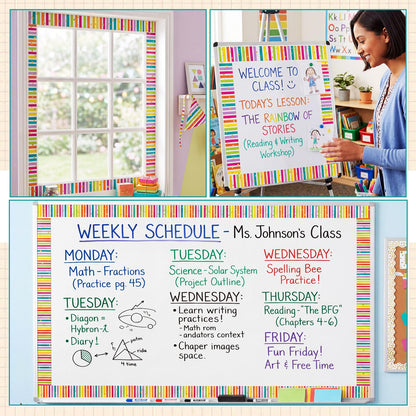 WELCOME TO
CLASS! :)
TODAY'S LESSON:
THE RAINBOW OF
STORIES
(Reading & Writing
Workshop)
WEEKLY SCHEDULE - Ms. Johnson's Class
MONDAY:
Math - Fractions
(Practice pg. 45)
TUESDAY:
• Diagon =
Hybron-λ
• Diary!
4 time
TUESDAY:
Science - Solar System
(Project Outline)
WEDNESDAY:
• Learn writing
practices!
- Math rom
- andators context
• Chaper images
space.
WEDNESDAY:
Spelling Bee
Practice!
THURSDAY:
Reading - "The BFG"
(Chapters 4-6)
FRIDAY:
Fun Friday!
Art & Free Time